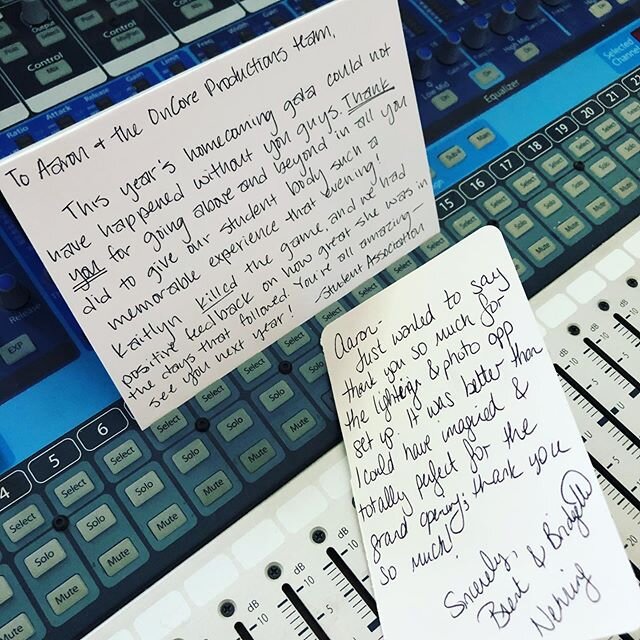 To Aaron & the OnCore Productions team,
This year's homecoming gala could not
have happened without you guys. Thank
you for going above and beyond in all you
did to give our student body such a
memorable experience that evening!
Kaitlyn killed the game, and we had
positive feedback on how great she was in
the days that followed. You're all amazing-
see you next year! -Student Association
Aaron-
Just wanted to say
thank you so much for
the lighting & photo opp
set up. It was better than
I could have imagined &
totally perfect for the
grand opening, thank you
so much!
Sincerely,
Brent & Bridgette
Nehring
Control
Mix
Ratio
Attack
Release
Gain
Limit
Freq
Width
Low Mid
High Mid
On
On
Equalizer
Selected
Chann
Subs
Main
Release
EXP
4
5
6
15
16
17
18
19
20
21
22
23
Select
Select
Select
Select
Select
Select
Solo
Solo
Solo
Solo
Mute
Mute
Mute
Mute
dB
dB
dB
dB
10
10
10
5
5
U